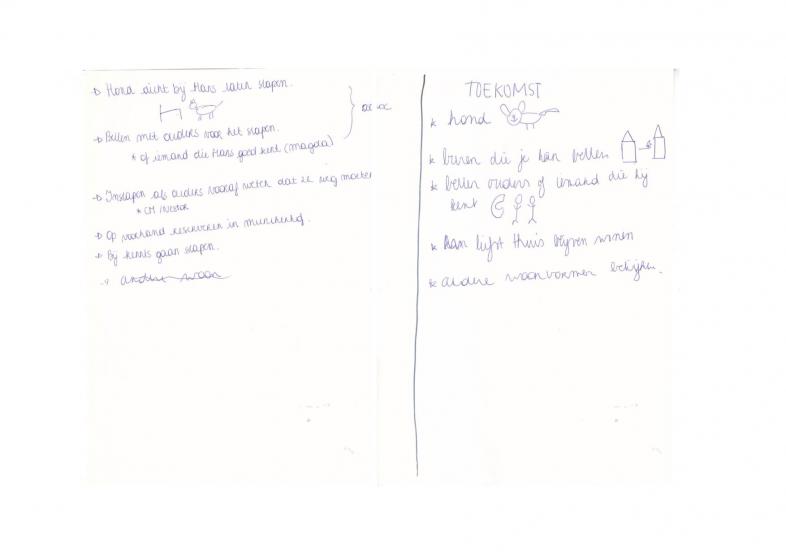 Hond dicht bij Hans laten slapen.
Bellen met ouders voor het slapen.
* of iemand die Hans goed kent (Magda)
Inslapen als ouders vooraf weten dat ze weg moeten
* CM
Op voorhand in
Bij kennis gaan slapen.
TOEKOMST
* hond
* buren die je kan bellen
* bellen ouders of iemand die hij
kent
* kan liefst thuis blijven wonen
* andere woonvormen bekijken.